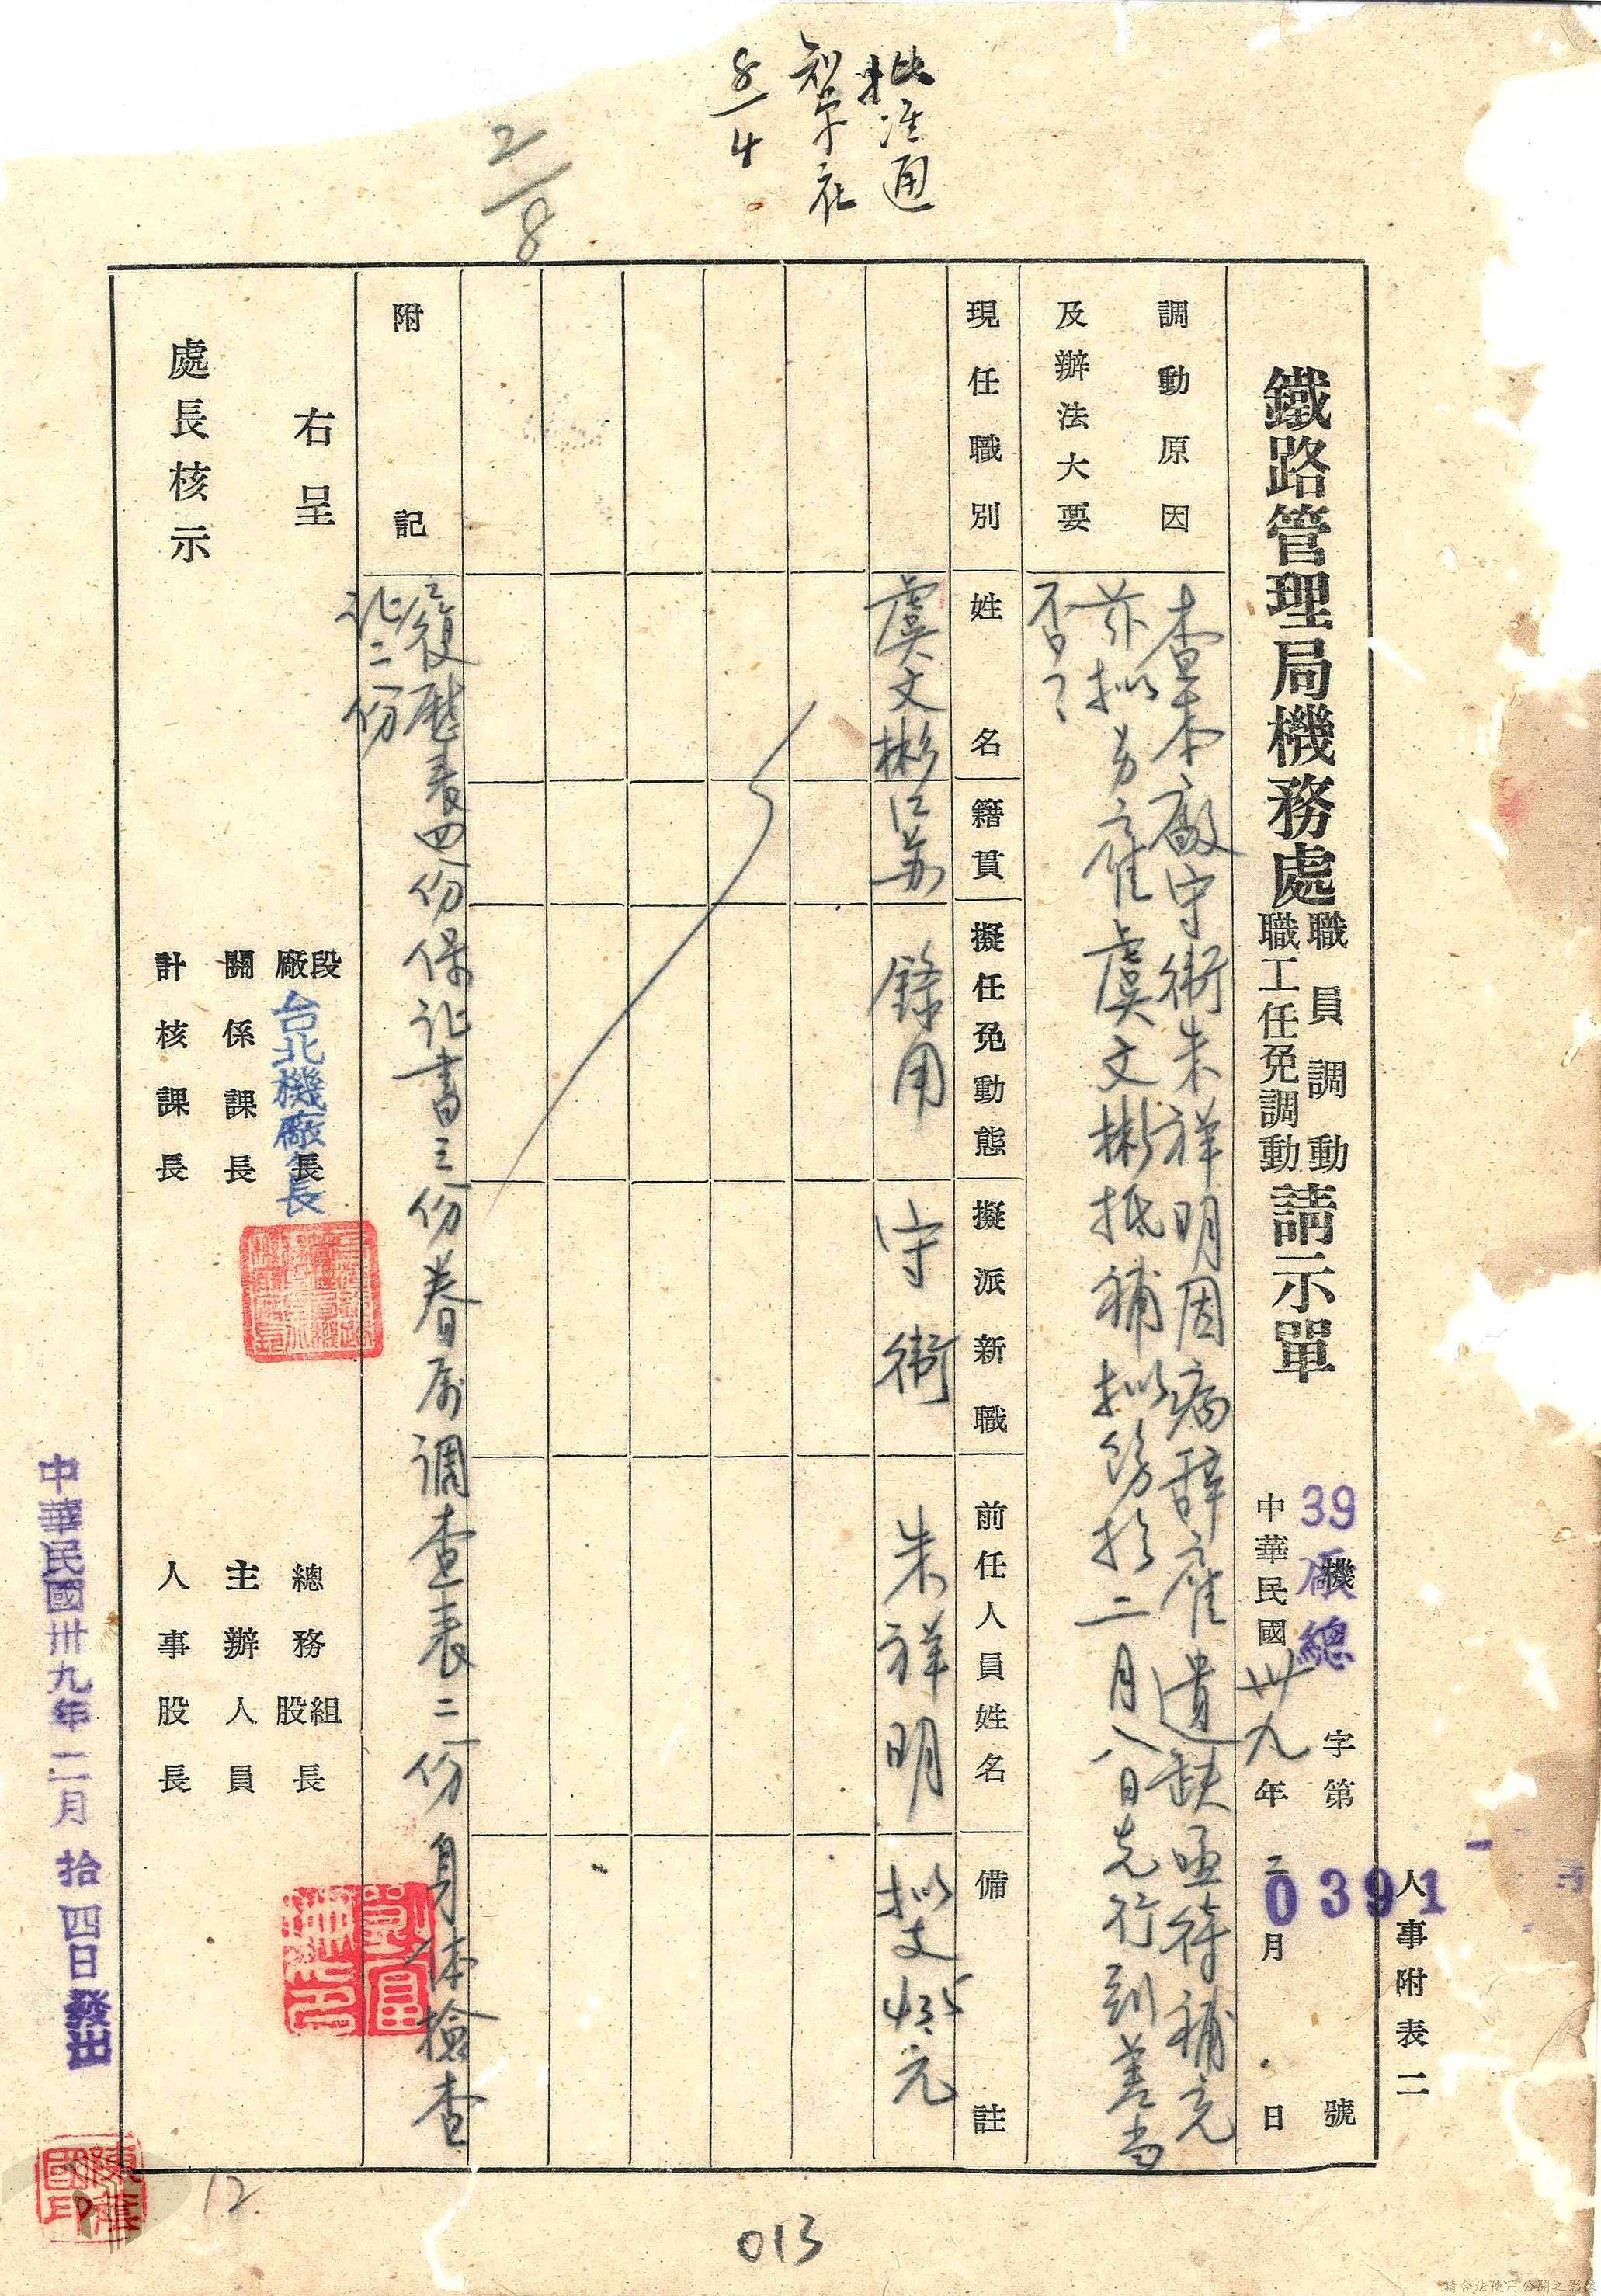 批准通
知
8/4
2/8
人事附表二
39機廠總字第0391號
鐵路管理局機務處職員調動職工任免調動請示單
中華民國卅九年二月 日
調動原因及辦法大要
查本廠守衛朱祥明因病辞雇遺缺亟待補充
茲拟另雇虞文彬抵補拟飭於二月八日先行到差当
否?
現任職別
姓名
籍貫
擬任免動態
擬派新職
前任人員姓名
備註
虞文彬
江苏
錄用
守衛
朱祥明
拟支 元
附記
履歷表四份保证書三份眷属调查表二份 身体檢查
证二份
右呈
處長核示
段廠長
台北機廠長
關係課長
計核課長
總務組股長
主辦人員
人事股長
中華民國卅九年二月拾四日發出
12
013
請合法使用公開之影像